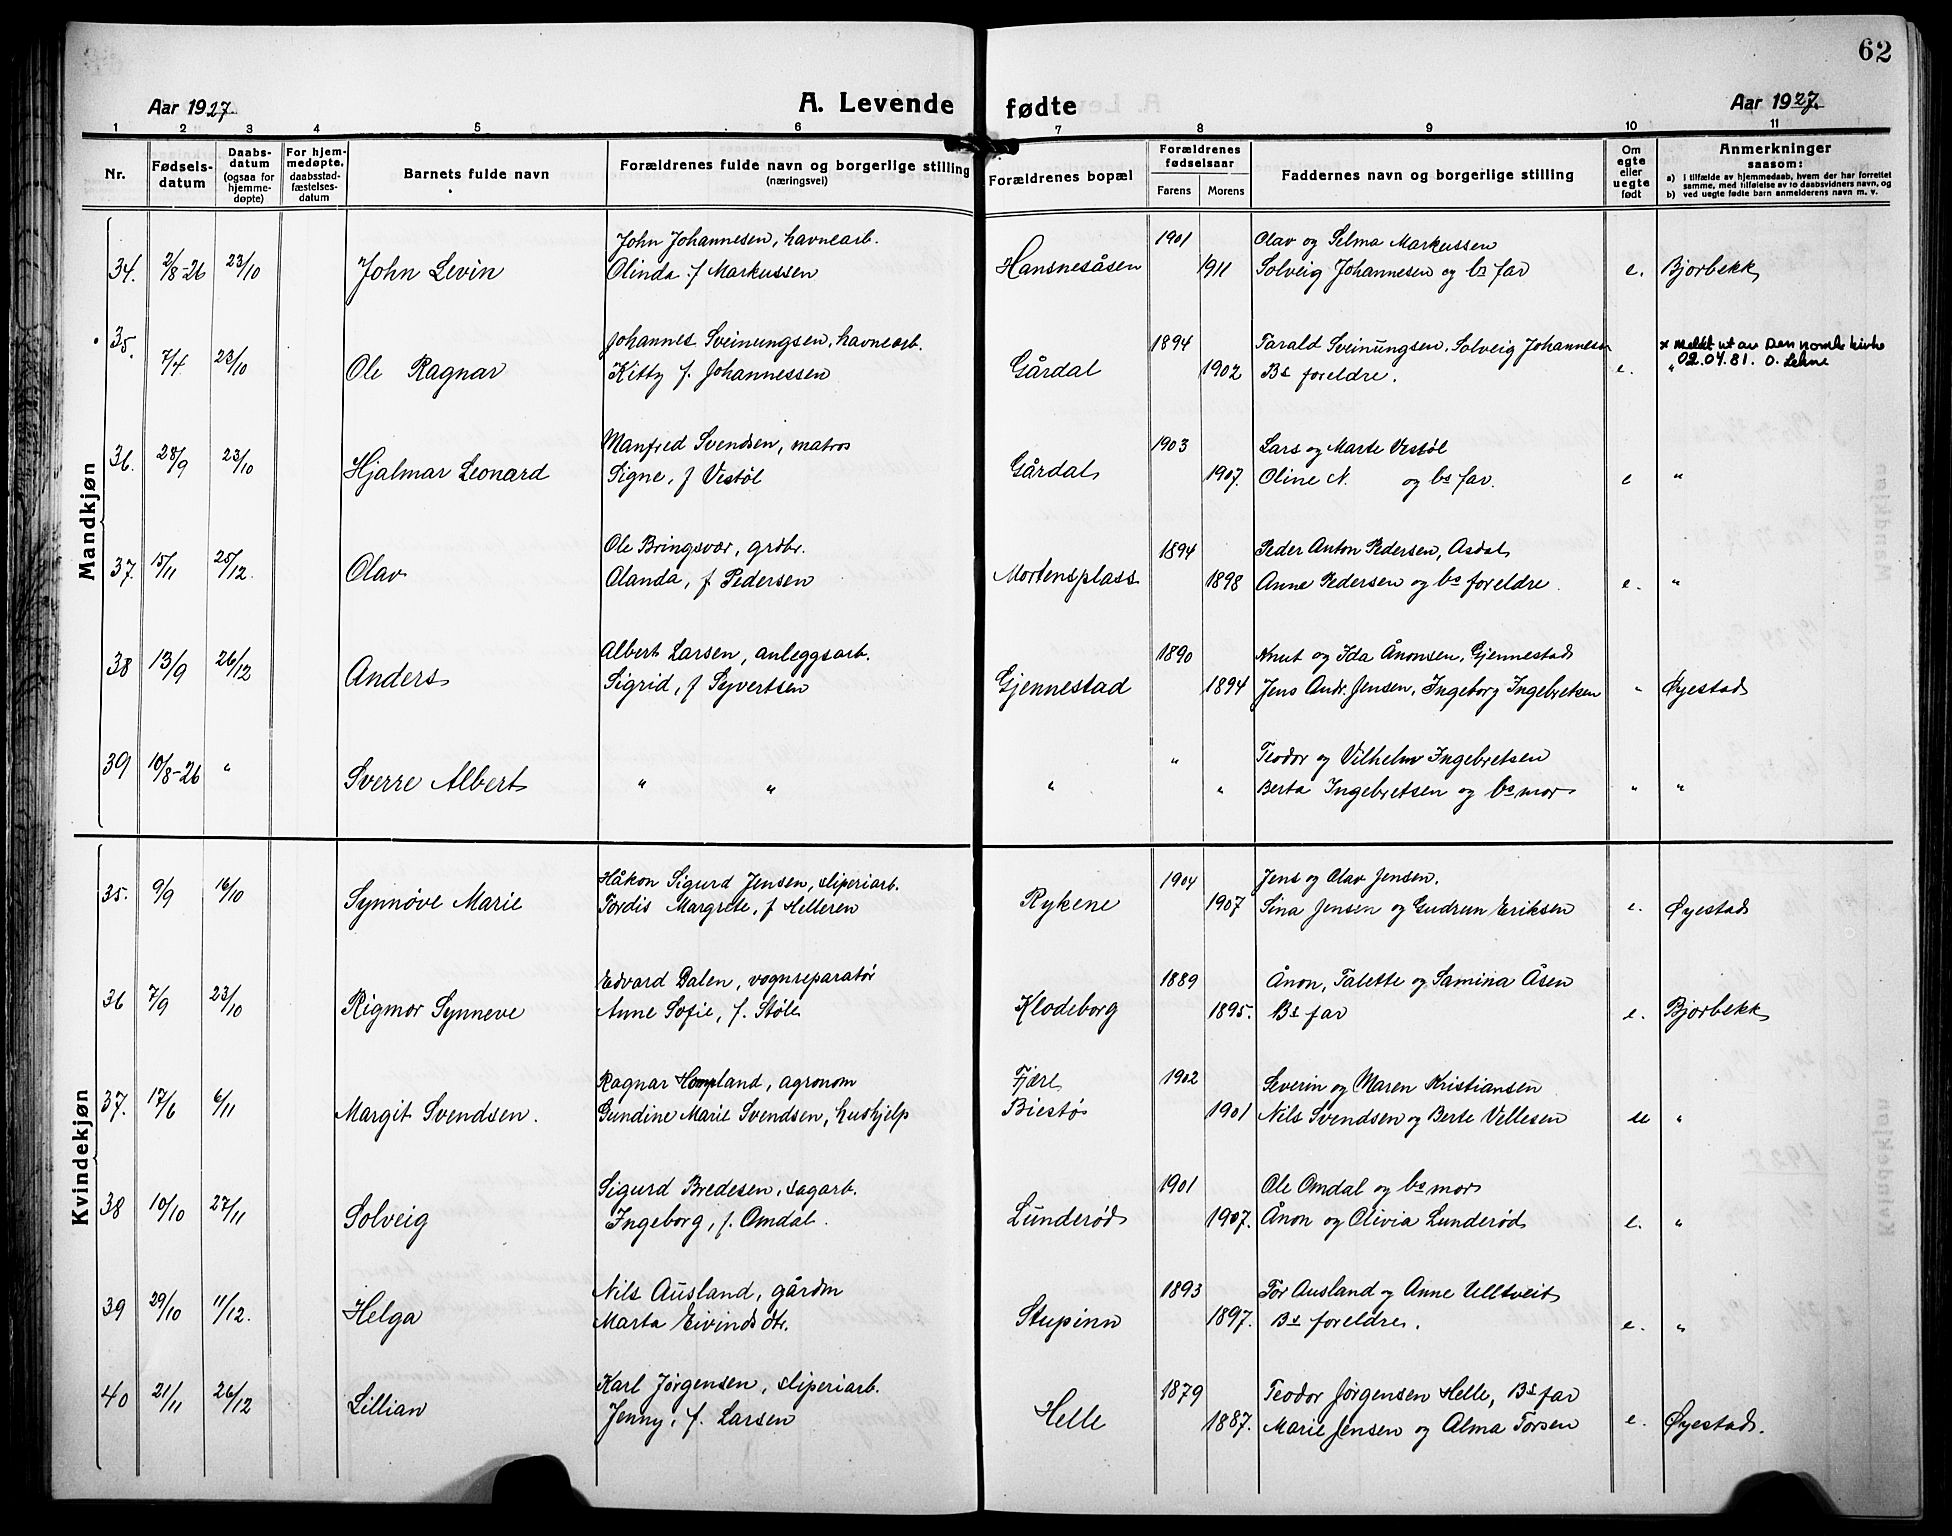 62
Aar 1927.
A. Levende fødte
Aar 1927.
1 2 3 4 5 6 7 8 9 10 11
Nr.
Fødsels-
datum
Daabs-
datum
(ogsaa for
hjemme-
døpte)
For hjem-
medøpte,
daabsstad-
fæstelses-
datum
Barnets fulde navn
Forældrenes fulde navn og borgerlige stilling
(næringsvei)
Forældrenes bopæl
Forældrenes
fødselsaar
Farens Morens
Faddernes navn og borgerlige stilling
Om
egte
eller
uegte
født
Anmerkninger
saasom:
a) i tilfælde av hjemmedaab, hvem der har forrettet
samme, med tilføielse av to daabsvidners navn, og
b) ved uegte fødte barn anmelderens navn m. v.
Mandkjøn
John Johannesen, havnearb. 1901 Olav og Selma Markussen
34. 2/8-26 23/10 John Levin Olinda f Markussen Hansnesåsen 1911 Solveig Johannesen og bs far e. Bjorbekk
35. Johannes Sveinungsen, havnearb. 1894 Tarald Sveinungsen, Solveig Johannesen x Meldt ut av Den norske kirke
7/4 23/10 Ole Ragnar Kitty f. Johannessen Gårdal 1902 Bs foreldre. e. " 02.04.81. O. Lehne
Manfred Svendsen, matros 1903 Lars og Marte Vestøl
36. 28/9 23/10 Hjalmar Leonard Signe, f Vestøl Gårdal 1907. Oline N. og bs far. e "
Ole Bringsvær, grdbr. 1894 Peder Anton Pedersen, Asdal
37. 15/11 25/12. Olav Olanda, f Pedersen Mortensplass 1898 Anne Pedersen og bs foreldre. e. "
Albert Larsen, anleggsarb. 1890 Knut og Ida Ånonsen, Gjennestad
38 13/9 26/12 Anders Sigrid, f Syvertsen Gjennestad 1894 Jens Andr. Jensen, Ingeborg Ingebretsen " Øyestad
" Teodor og Vilhelm Ingebretsen
39 10/8-26 " Sverre Albert " " " " Berta Ingebretsen og bs mor " "
Kvindekjøn
Håkon Sigurd Jensen, sliperiarb. 1904 Jens og Olav Jensen.
35. 9/9 16/10 Synnøve Marie Tordis Margrete, f Helleren Rykene 1907 Sina Jensen og Gudrun Eriksen e. Øyestad
Edvard Dalen, vognreparatør 1889 Ånon, Talette og Samina Åsen
36 7/9 23/10 Rigmor Synneve Anne Sofie, f. Støle Klodeborg 1895. Bs far e. Bjorbekk
Ragnar Hompland, agronom Fjære 1902 Severin og Maren Kristiansen
37. 17/6 6/11 Margit Svendsen. Gundine Marie Svendsen, hushjelp Biestø 1901 Nils Svendsen og Berte Vellesen ue "
Sigurd Bredesen, sagarb. 1901 Ole Omdal og bs mor
38 10/10 27/11 Solveig Ingeborg, f. Omdal. Lunderød 1907. Ånon og Olivia Lunderød e. "
Nils Ausland, gårdm 1893 Tor Ausland og Anne Ulltveit
39 29/10 11/12. Helga Marta Eivindsdtr. Stupinn 1897. Bs foreldre. e. "
Karl Jørgensen, sliperiarb. 1879 Teodor Jørgensen Helle, Bs far
40 21/11 26/12 Lillian Jenny, f. Larsen Helle 1887. Marie Jensen og Alma Torsen e. Øyestad.